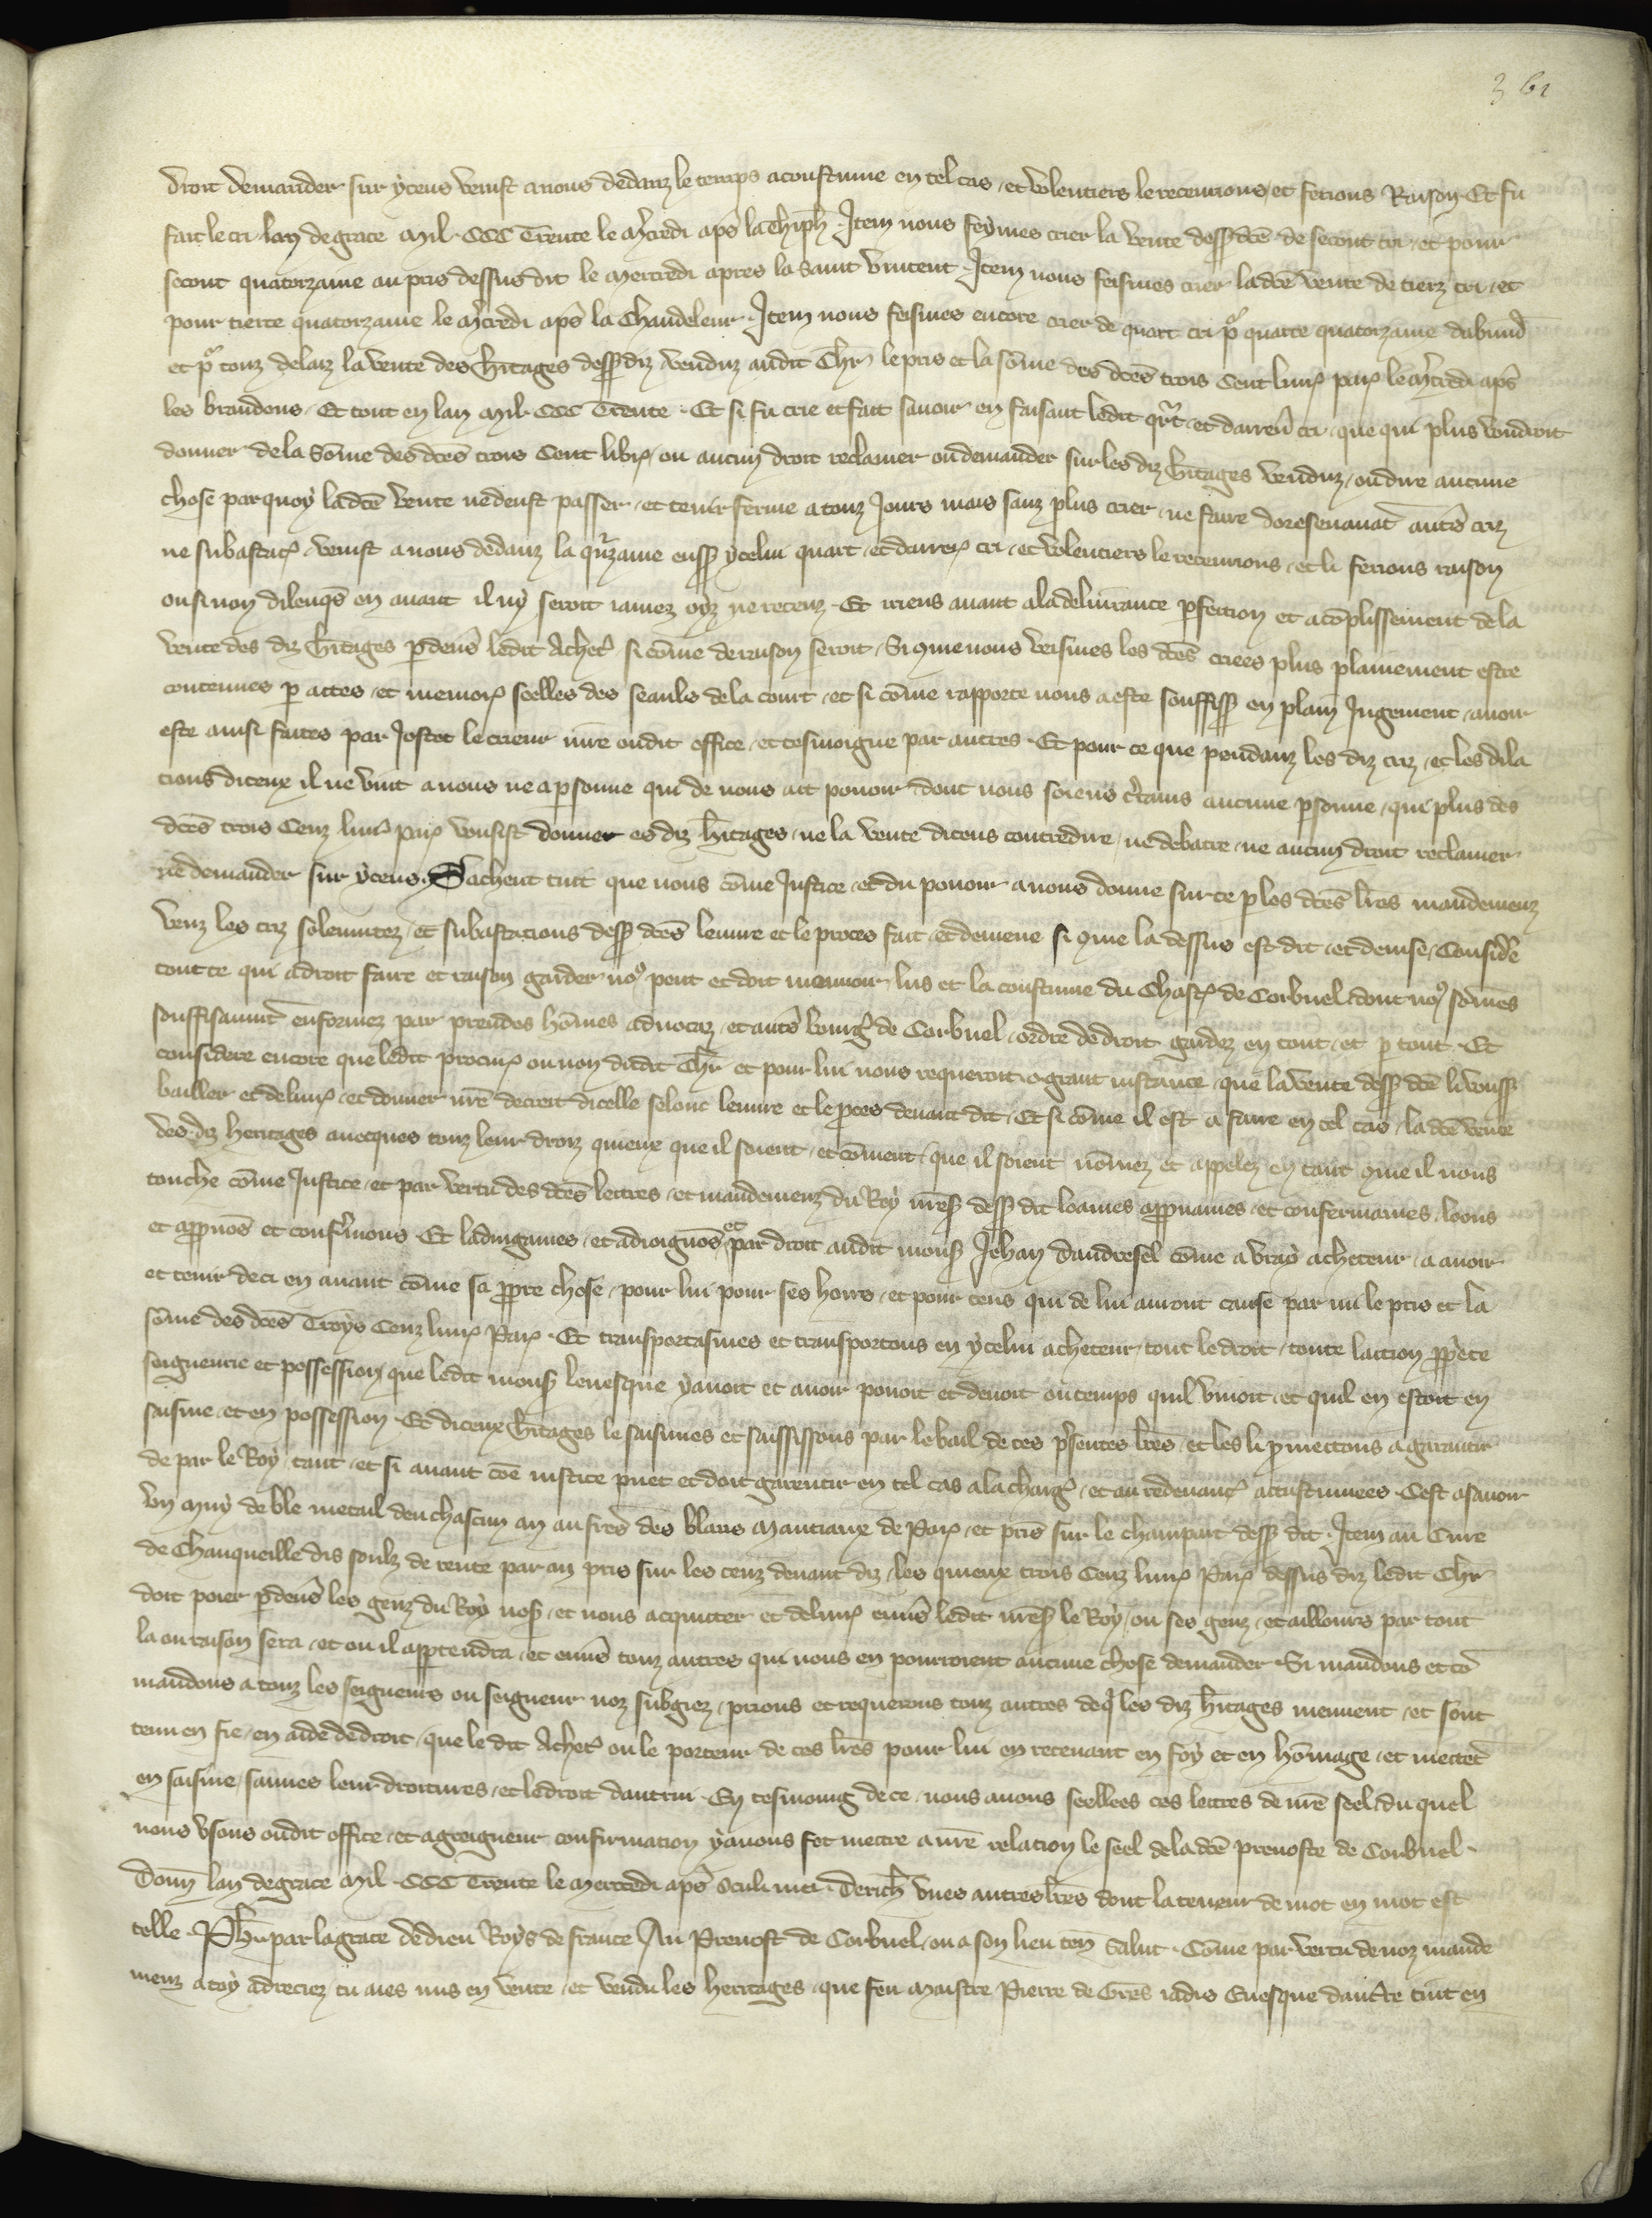 361
droit demander sur yceus venist a nous dedanz le temps acoustume en tel cas et volentiers le recevrions et ferions Raison Et fu
fait le cri lan de grace Mil CCC Trente le mcredi aps la thiph. Item nous feymes crier la vente dess dce de secont cri et pour
secont quatorzaine au pris dessus dit le mercredi apres la saint vincent. Item nous feismes crier la dce vente de tierz cri et
pour tierce quatorzaine le mcredi aps la Chandeleur. Item nous feismes encore crier de quart cri po quarte quatorzaine dabund
et po touz delaiz la vente des hitages dess diz venduz audit Chr le pris et la some des dces trois Cent livr par le mcredi aps
les brandons. Et tout en lan Mil CCC Trente. Et si fu crie et fait savoir en faisant ledit qrt et darreni cri que qui plus voudroit
donner de la some des dces trois Cent libr ou aucun droit reclamer ou demander sur les diz hitages venduz ou dire aucune
chose par quoy la dce vente ne deust passer et tenir ferme a touz Jours mais sanz plus crier ne faire doresenavat autres criz
ne subastac venist a nous dedanz la qrzaine enss ycelui quart et darren cri et volentiers le recevrions et li ferions raison
ou si non dilenqs en avant il ny seroit iamez oyz ne receuz. Et iriens avant a la delivrance pfection et acoplissement de la
vente des diz hitages pdeus ledit achet si come de raison seroit. Si que nous veismes les dces criees plus plainement estre
contenues p actes et memor seelles des seauls de la court et si come rapporte nous a este souffiss en plain Jugement avoir
este ainsi faites par Jostet le crieur iure oudit office et tesmoigne par autres. Et pour ce que pendanz les diz criz et les dila
cions diceux il ne vint a nous ne a psonne qui de nous ait pouoir dont nous soiens ctains aucune psonne qui plus des
dces trois Cenz livr par vousist donner es diz hitages ne la vente diceus contredire ne debatre ne aucun droit reclamer
ne demander sur yceus. Sachent tuit que nous come Justice et du pouoir a nous donne sur ce p les dces lres mandemenz
venz les criz solennitez et subastacions dess dces leuvre et le proces fait et demene si que la dessus est dit et devise. Considere
tout ce qui a droit faire et raison garder no peut et doit mouvoir lus et la coustume du Chastel de Corbueil dont no somes
souffisanmt enformez par preudes homes advocaz et autres bourg de Corbueil ordre de droit gardez en tout et p tout. Et
considere encore que ledit procur ou non dudit Chr et pour lui nous requeroit o grant instance que la vente dess dce li vouss
bailler et delivr et donner nre decret dicelle selonc leuvre et le pces devant dit. Et si come il est a faire en tel cas la dce vente
des diz heritages avecques touz leur droiz quiex que il soient et coment que il soient nomez et appelez en tant que il nous
touche come Justice et par vertu des dces lettres et mandemenz du Roy nres dess dit loames appvames et confermames loons
et appvos et confermons Et ladiugames et adioignos et par droit audit mons Jehan dandresel come a vray acheteur a avoir
et tenir deci en avant come sa ppre chose pour lui pour ses hoirs et pour ceus qui de lui auront cause par mi le pris et la
some des dces Troys Cenz livr Par. Et transportasmes et transportons en ycelui acheteur tout le droit toute laction ppete
seigneurie et possession que ledit mons levesque y avoit et avoir pouoit et devoit ou temps quil vivoit et quil en estoit en
saisine et en possession. Et diceux hitages le saisimes et saississons par le bail de ces psentes lres et les li pmettons a garantir
de par le Roy tant et si avant coe iustice puet et doit garentir en tel cas a la charg et au redevanc acustumees. Cest asavoir
un muy de ble metail deu chascun an aus fres des blans Mantiaux de Par et pris sur le champart dess dit. Item au Cure
de Chanqueille dis soulz de rente par an pris sur les cenz devant diz les quiex trois Cenz livr Par dessus diz ledit Chr
doit poier pdeus les genz du Roy nos et nous acquitter et delivr envs ledit nres le Roy ou ses genz et ailleurs par tout
la ou raison sera et ou il appartendra et envs touz autres qui nous en pourroient aucune chose demander. Si mandons et co
mandons a touz les seigneurs ou seigneur noz subgiez prions et requerons touz autres de q les diz hitages meuvent et sont
tenu en fie en aide de droit que le dit achet ou le porteur de ces lres pour lui en recevant en foy et en homage et mettet
en saisine sauves leur droitures et le droit dautrui. En tesmoing de ce nous avons seellees ces lettres de nre seel du quel
nous usons oudit office et a greigneur confirmation y avons fet mettre a nre relation le seel de la dce prevoste de Corbueil.
Donn lan de grace Mil CCC Trente le mercredi aps oculi mei. Derich unes autres lres dont la teneur de mot en mot est
telle. Ph. par la grace de dieu Roys de france Au Prevost de Corbueil ou a son lieu ten Salut. Come par vertu de noz mande
menz a toy adreciez tu aies mis en vente et vendu les heritages que feu maistre Pierre de Gres iadis Evesque daucrre tint en